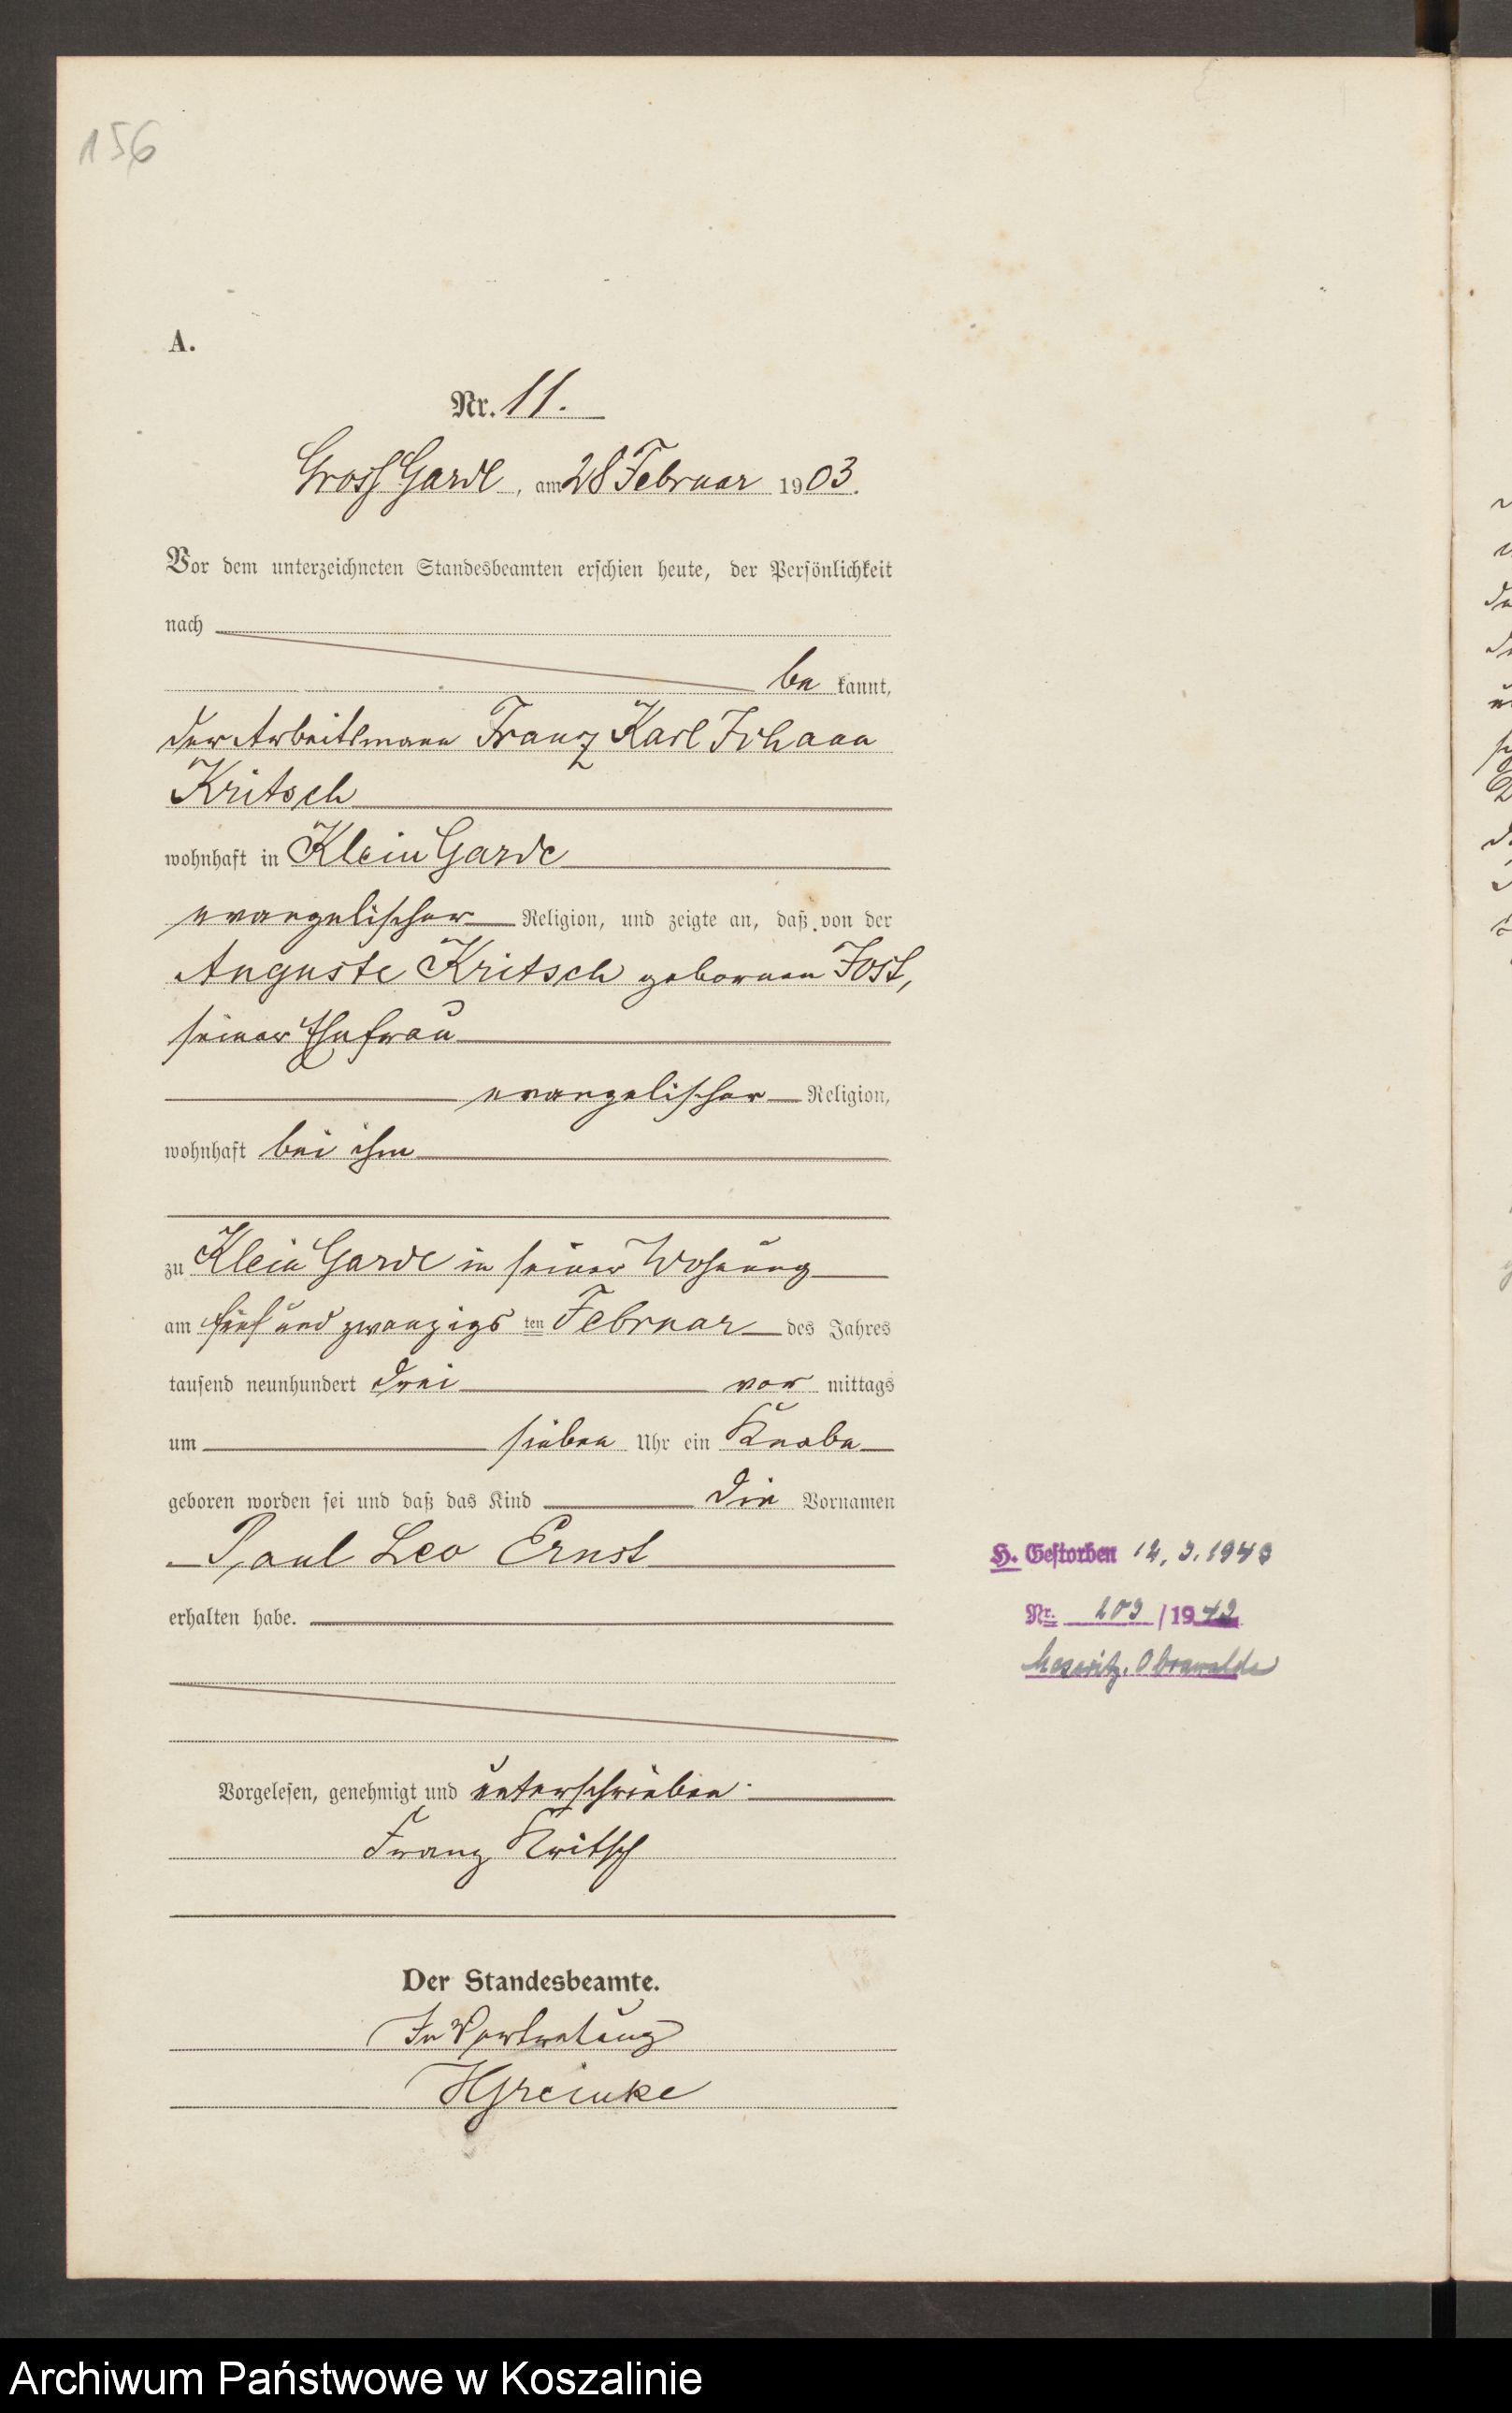 156
A.
Nr. 11.
Gross Garde, am 28 Februar 1903.
Vor dem unterzeichneten Standesbeamten erschien heute, der Persönlichkeit
nach
be kannt,
der Arbeitsmann Franz Karl Johann
Kritsch
wohnhaft in Klein Garde
evangelischer Religion, und zeigte an, daß von der
Auguste Kritsch geborenen Jost,
seiner Ehefrau
evangelischer Religion,
wohnhaft bei ihm
zu Klein Garde in seiner Wohnung
am fünf und zwanzigs ten Februar des Jahres
tausend neunhundert drei vor mittags
um sieben Uhr ein Knabe
geboren worden sei und daß das Kind die Vornamen
Paul Leo Ernst
erhalten habe.
H. Gestorben 14. 3. 1943
Nr. 203 /1943
Meseritz. Obrawalde
Vorgelesen, genehmigt und unterschrieben.
Franz Kritsch
Der Standesbeamte.
In Vertretung
Archiwum Państwowe w Koszalinie